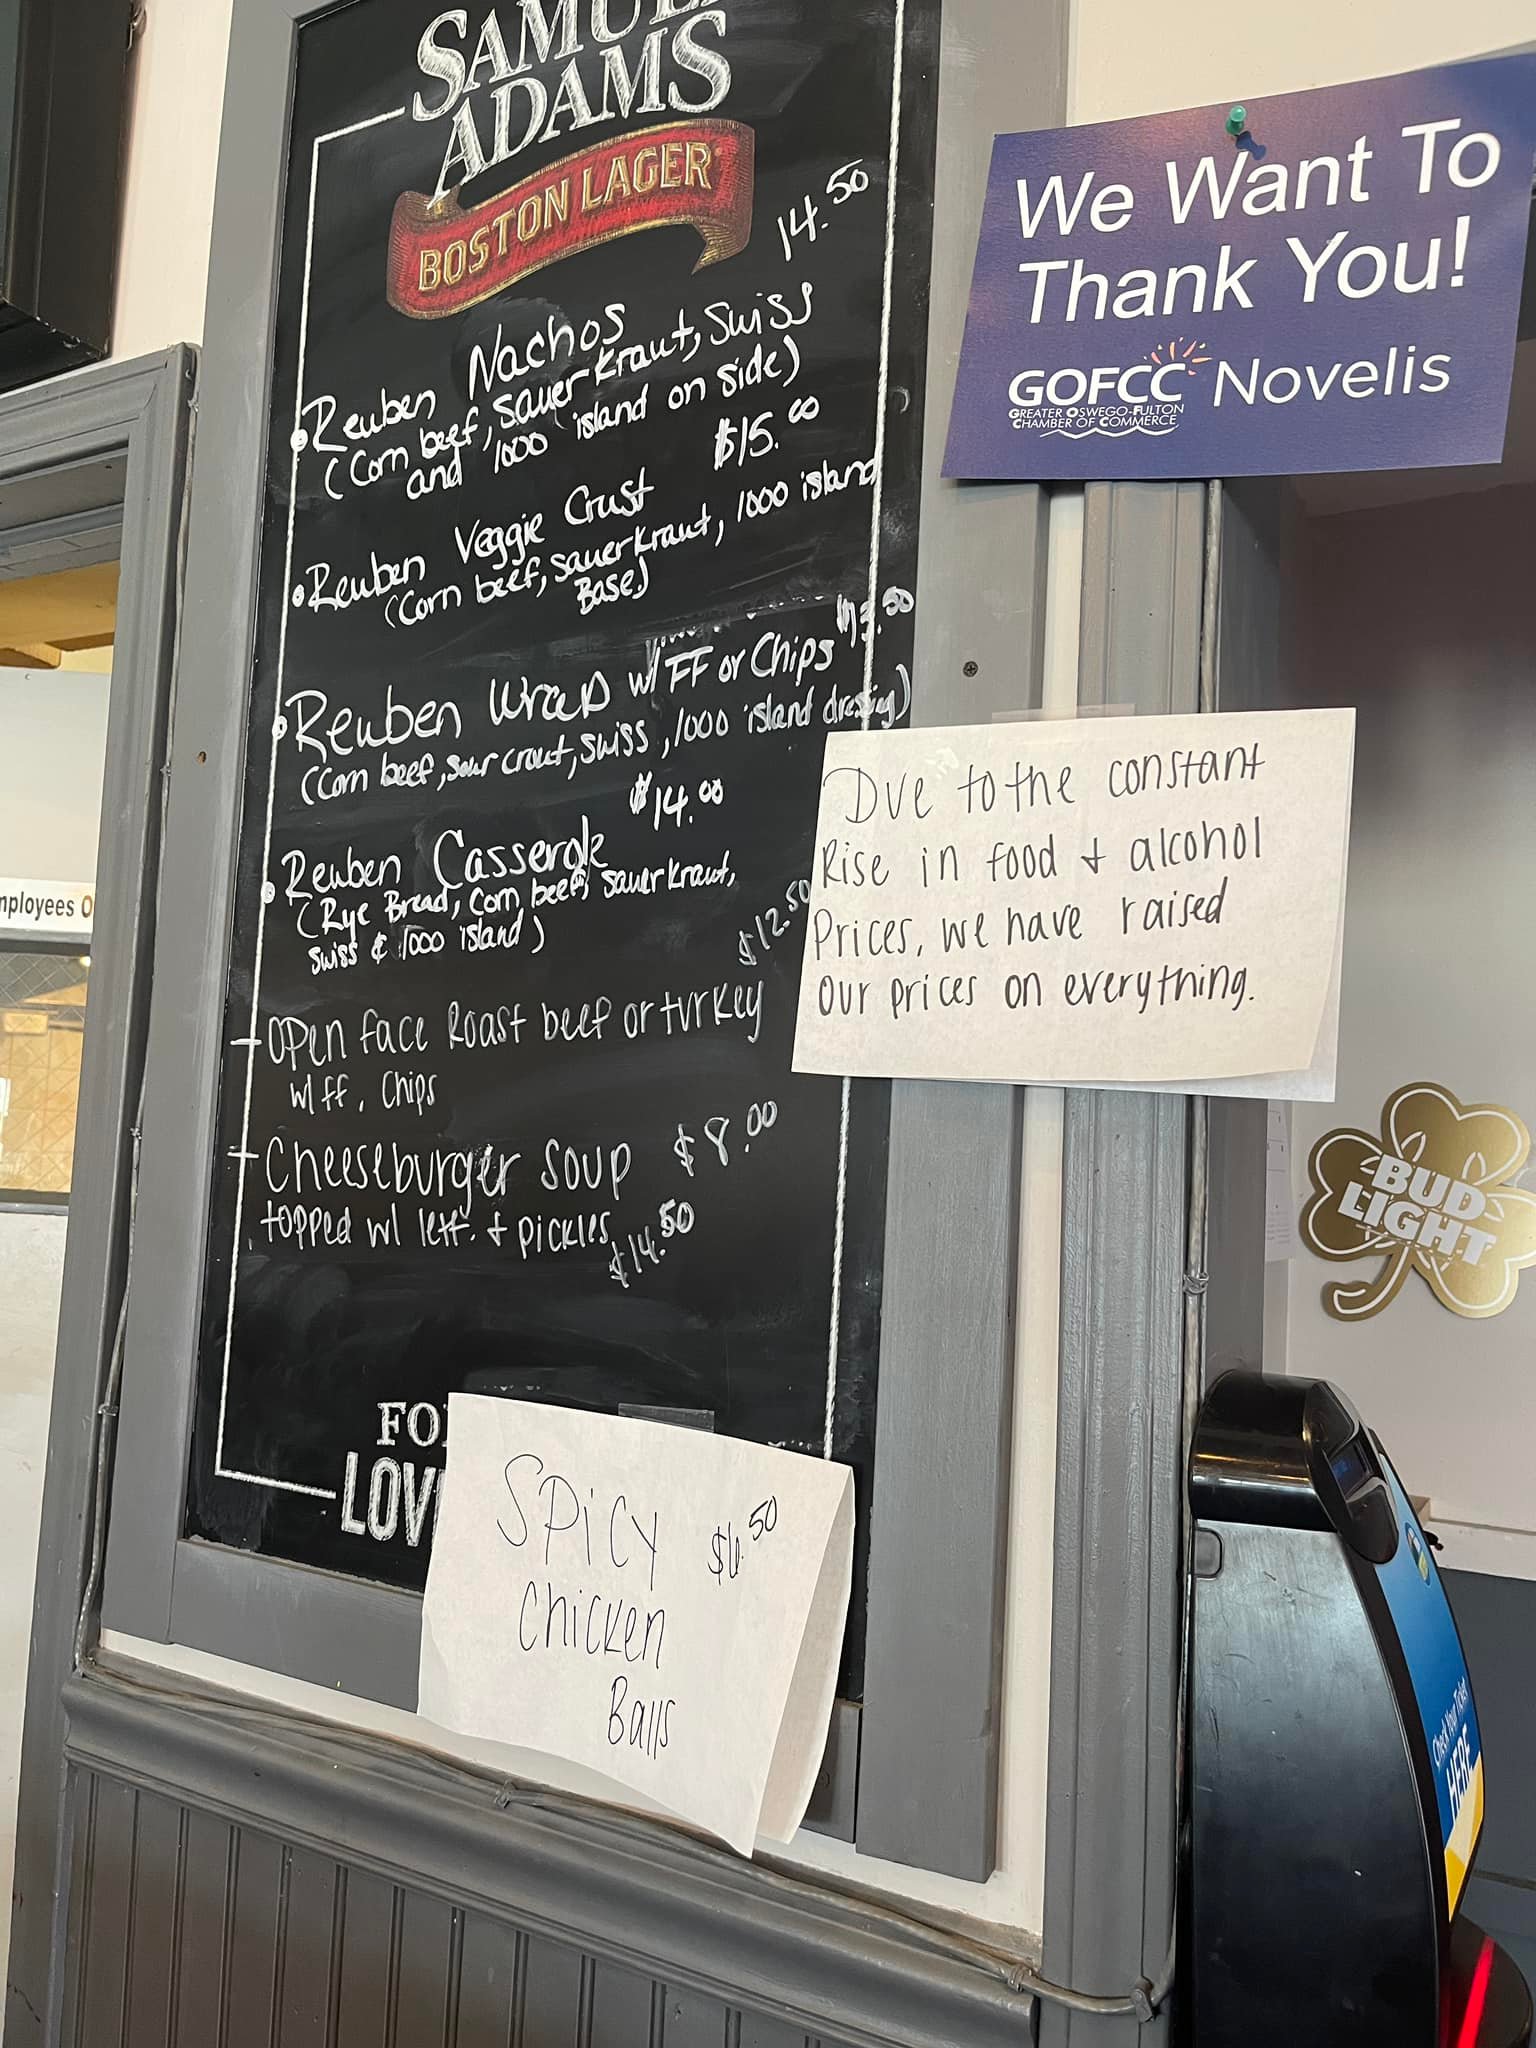 SAMUEL
ADAMS
BOSTON LAGER
14.50
Reuben Nachos
(Corn beef, Sauerkraut, Swiss
and 1000 island on side)
$15.00
Reuben Veggie Crust
(Corn beef, Sauerkraut, 1000 island
Base)
$13.50
Reuben Wrap w/ FF or Chips
(Corn beef, Sour crout, Swiss, 1000 island dressing)
$14.00
Reuben Casserole
(Rye Bread, Corn beef, Sauerkraut,
Swiss & 1000 island)
$12.50
- Open Face Roast beef or turkey
w/ ff, Chips
- Cheeseburger Soup $8.00
topped w/ lett. + pickles
$14.50
FO
LOV
Spicy $6.50
Chicken
Balls
We Want To
Thank You!
GOFCC Novelis
GREATER OSWEGO-FULTON
CHAMBER OF COMMERCE
Due to the constant
Rise in food + alcohol
Prices, we have raised
Our prices on everything.
BUD
LIGHT
mployees O
Check Your Ticket
HERE